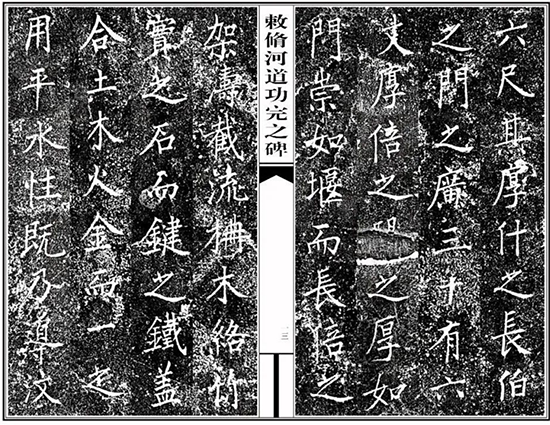 六尺其厚什之長伯
之門之廣三十有六
丈厚倍之之厚如
門崇如堰而長倍之
敕脩河道功完之碑
一三
架濤截流柵木絡竹
實之石而鍵之鐵蓋
合土木火金而一之
用平水性既乃導汶